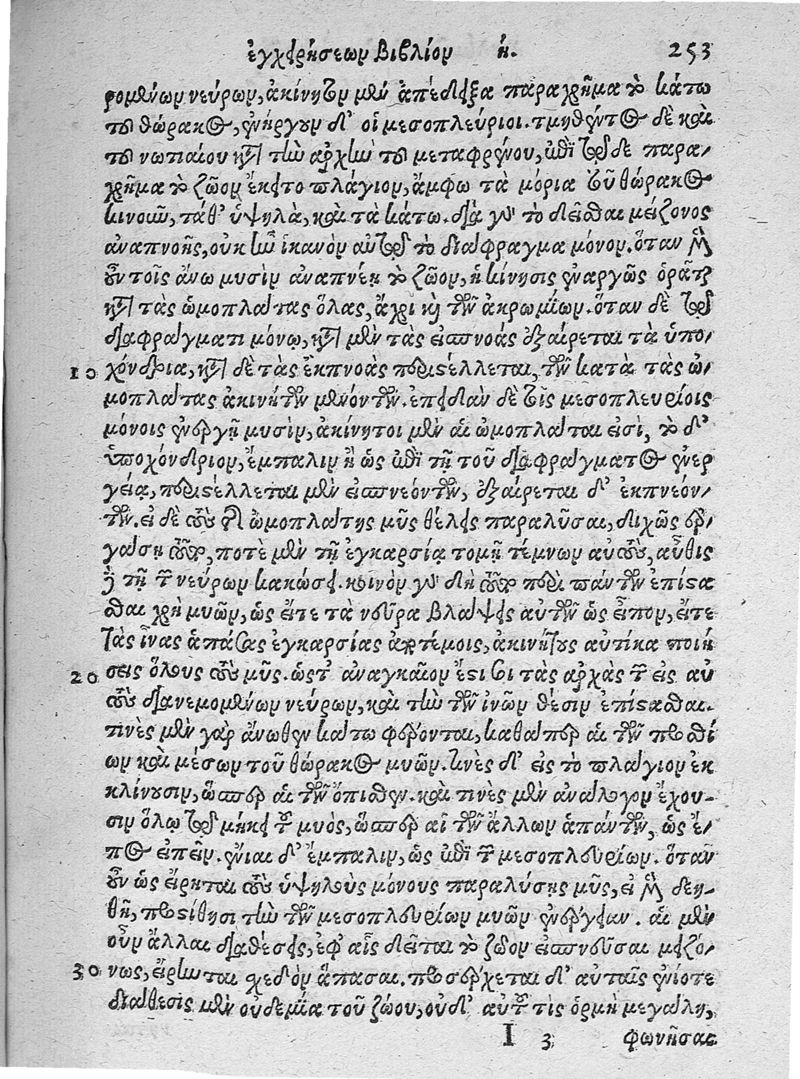 ἐγχειρήσεων βιβλίον η. 253
ρομένων νεύρων, ἀκίνητον μὲν ἀπέδειξα παραχρῆμα τὸ κάτω
τοῦ θώρακος, ἐνήργουν δ' οἱ μεσοπλεύριοι. τμηθέντος δὲ καὶ
τοῦ νωτιαίου κατὰ τὴν ἀρχὴν τοῦ μεταφρένου, ἐπὶ τῷδε παρα-
χρῆμα τὸ ζῶον ἔκειτο πλάγιον, ἄμφω τὰ μόρια τοῦ θώρακος
κινοῦν, τάθ' ὑψηλὰ, καὶ τὰ κάτω. διὰ γὰρ τὸ δεῖσθαι μείζονος
ἀναπνοῆς, οὐκ ἦν ἱκανὸν αὐτῷ τὸ διάφραγμα μόνον. ὅταν μὲν
οὖν τοῖς ἄνω μυσὶν ἀναπνέῃ τὸ ζῶον, ἡ κίνησις ἐναργῶς ὁρᾶται
κατὰ τὰς ὠμοπλάτας ὅλας, ἄχρι καὶ τῶν ἀκρωμίων. ὅταν δὲ τῷ
διαφράγματι μόνῳ, κατὰ μὲν τὰς εἰσπνοάς ἐξαίρεται τὰ ὑπο-
10 χόνδρια, κατὰ δὲ τὰς ἐκπνοὰς προστέλλεται, τῶν κατὰ τὰς ὠ-
μοπλάτας ἀκινήτων μενόντων. ἐπειδὰν δὲ τοῖς μεσοπλευρίοις
μόνοις ἐνεργῇ μυσὶν, ἀκίνητοι μὲν αἱ ὠμοπλάται εἰσὶ, τὸ δ'
ὑποχόνδριον, ἔμπαλιν ἢ ὡς ἐπὶ τῇ τοῦ διαφράγματος ἐνερ
γείᾳ, προστέλλεται μὲν εἰσπνεόντων, ἐξαίρεται δ' ἐκπνεόν-
των. εἰ δὲ τοὺς τῆς ὠμοπλάτης μῦς θέλεις παραλῦσαι, διχῶς ἐρ-
γάσῃ τοῦτο, ποτὲ μὲν τῇ ἐγκαρσίᾳ τομῇ τέμνων αὐτοὺς, αὖθις
δὲ τῇ τῶν νεύρων κακώσει. κοινὸν γὰρ δὴ τοῦτο περὶ πάντων ἐπίστα
σθαι χρὴ μυῶν, ὡς εἴτε τὰ νεῦρα βλάψεις αὐτῶν ὡς εἶπον, εἴτε
τὰς ἶνας ἁπάσας ἐγκαρσίας ἀποτέμοις, ἀκινήτους αὐτίκα ποιή
20 σεις ὅλους τοὺς μῦς. ὥστ' ἀναγκαῖον ἔστι σοι τὰς ἀρχὰς τῶν εἰς αὐ
τοὺς διανεμομένων νεύρων, καὶ τὴν τῶν ἰνῶν θέσιν ἐπίστασθαι.
τινὲς μὲν γὰρ ἄνωθεν κάτω φέρονται, καθάπερ αἱ τῶν προσθί
ων καὶ μέσων τοῦ θώρακος μυῶν. τινὲς δ' εἰς τὸ πλάγιον ἐκ
κλίνουσιν, ὥσπερ αἱ τῶν ὄπισθεν. καὶ τινὲς μὲν ἀνάλογον ἔχου-
σιν ὅλῳ τῷ μήκει τοῦ μυὸς, ὥσπερ αἱ τῶν ἄλλων ἁπάντων, ὡς ἔ-
πος εἰπεῖν. ἔνιαι δ' ἔμπαλιν, ὡς ἐπὶ τῶν μεσοπλευρίων. ὅταν
οὖν ὡς εἴρηται τοὺς ὑψηλοὺς μόνους παραλύσῃς μῦς, εἰ μὲν δεη-
θῇ, προστίθησι τὴν τῶν μεσοπλευρίων μυῶν ἐνέργειαν. αἱ μὲν
οὖν ἄλλαι διαθέσεις, ἐφ' αἷς δεῖται τὸ ζῶον εἰσπνεῦσαι μειζό-
30 νως, εἴρηνται σχεδὸν ἅπασαι. προσέρχεται δ' αὐταῖς ἐνίοτε
διάθεσις μὲν οὐδεμία τοῦ ζώου, οὐδ' αὐτοῦ τις ὁρμὴ μεγάλη,
I 3 φωνῆσαι